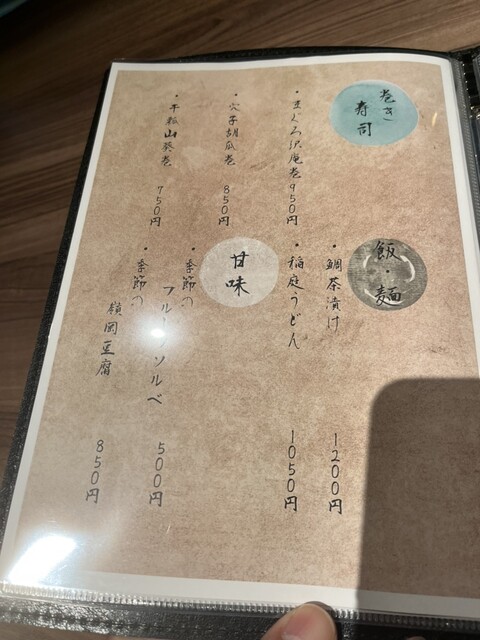 巻き
寿司
・まぐろ沢庵巻 950円
・穴子胡瓜巻 850円
・干瓢山葵巻 750円
飯・麺
・鯛茶漬け 1200円
・稲庭うどん 1050円
甘味
・季節の
フルーツソルベ 500円
・季節の
嶺岡豆腐 850円